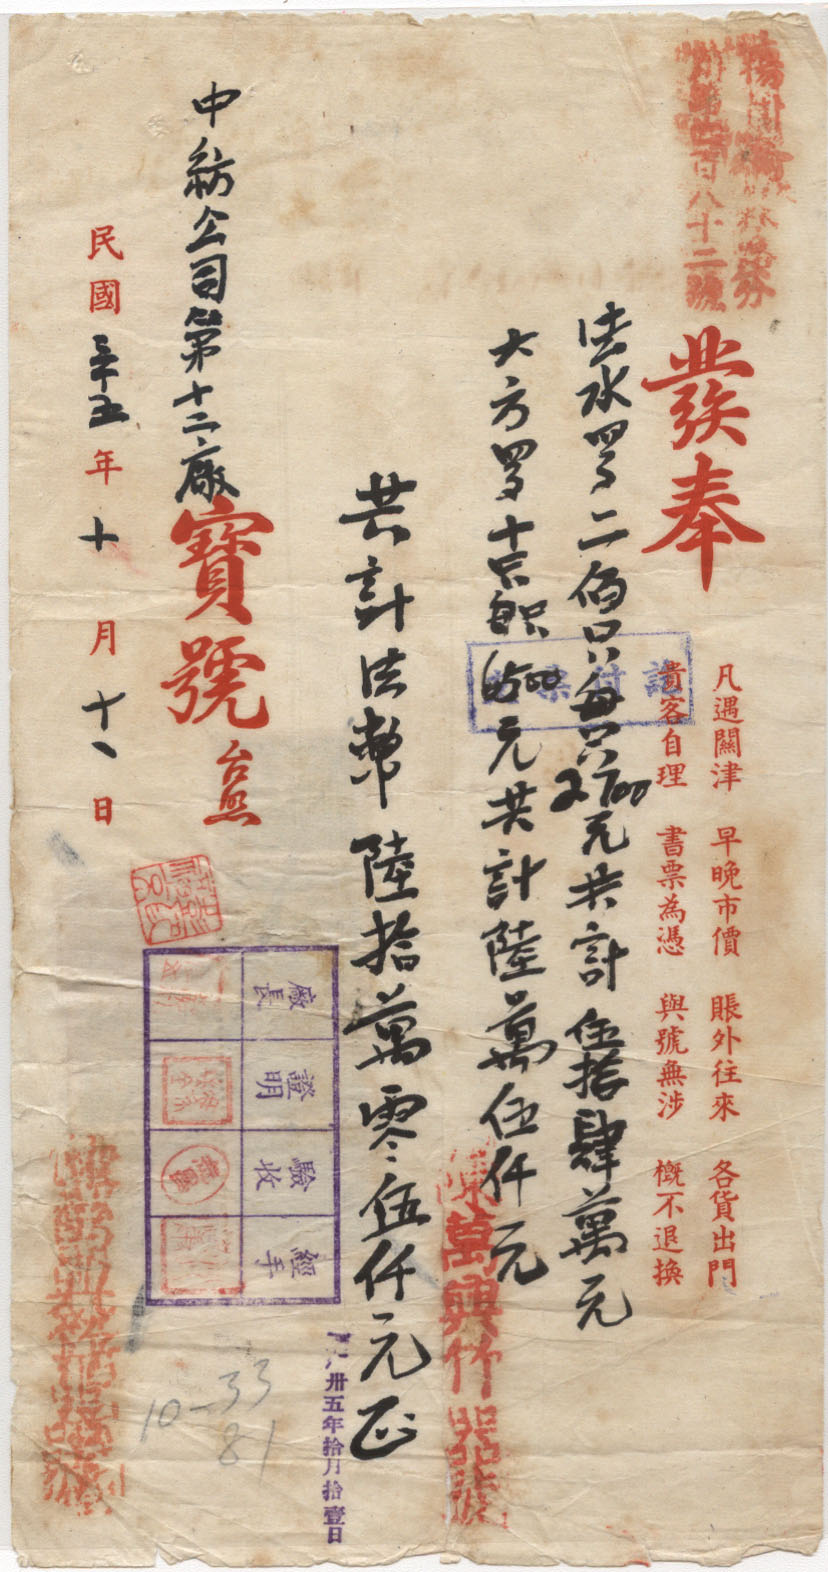 發奉
凡遇關津 早晚市價 賬外往來 各貨出門
貴客自理 書票為憑 與號無涉 概不退換
水羅二佰只每只2700元共計伍拾肆萬元
大方羅十只每只6500元共計陸萬伍仟元
請付
陳萬興竹器號
共計法幣陸拾萬零伍仟元正
中紡公司第十二廠寶號台照
廠長
證明
驗收
經手
卅五年拾月拾壹日
民國三十五年十月十一日
10-33
81